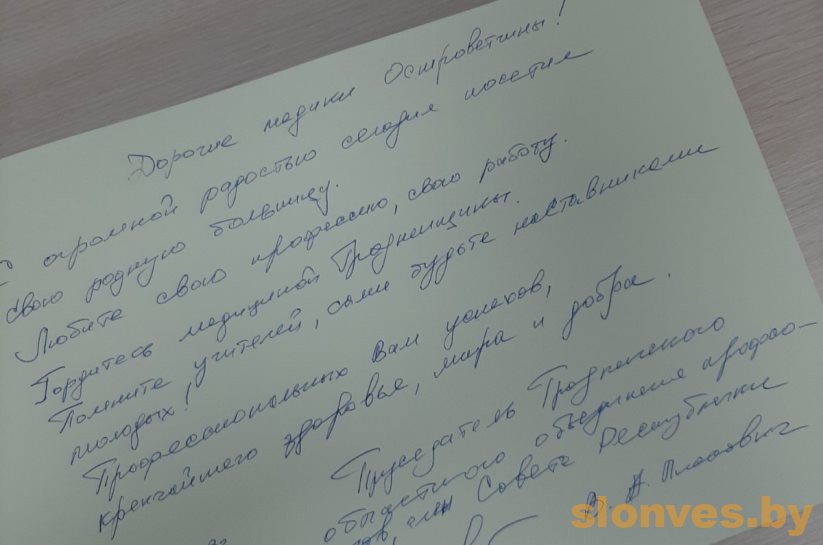 Дорогие медики Островетчины!
С огромной радостью сегодня посетил
свою родную больницу.
Любите свою профессию, свою работу.
Гордитесь медициной Гродненщины.
Помните учителей, сами будьте наставниками
молодых!
Профессиональных Вам успехов,
крепчайшего здоровья, мира и добра.
Председатель Гродненского
областного объединения профсо-
юзов, член Совета Республики
В. А. Лискович
slonves.by